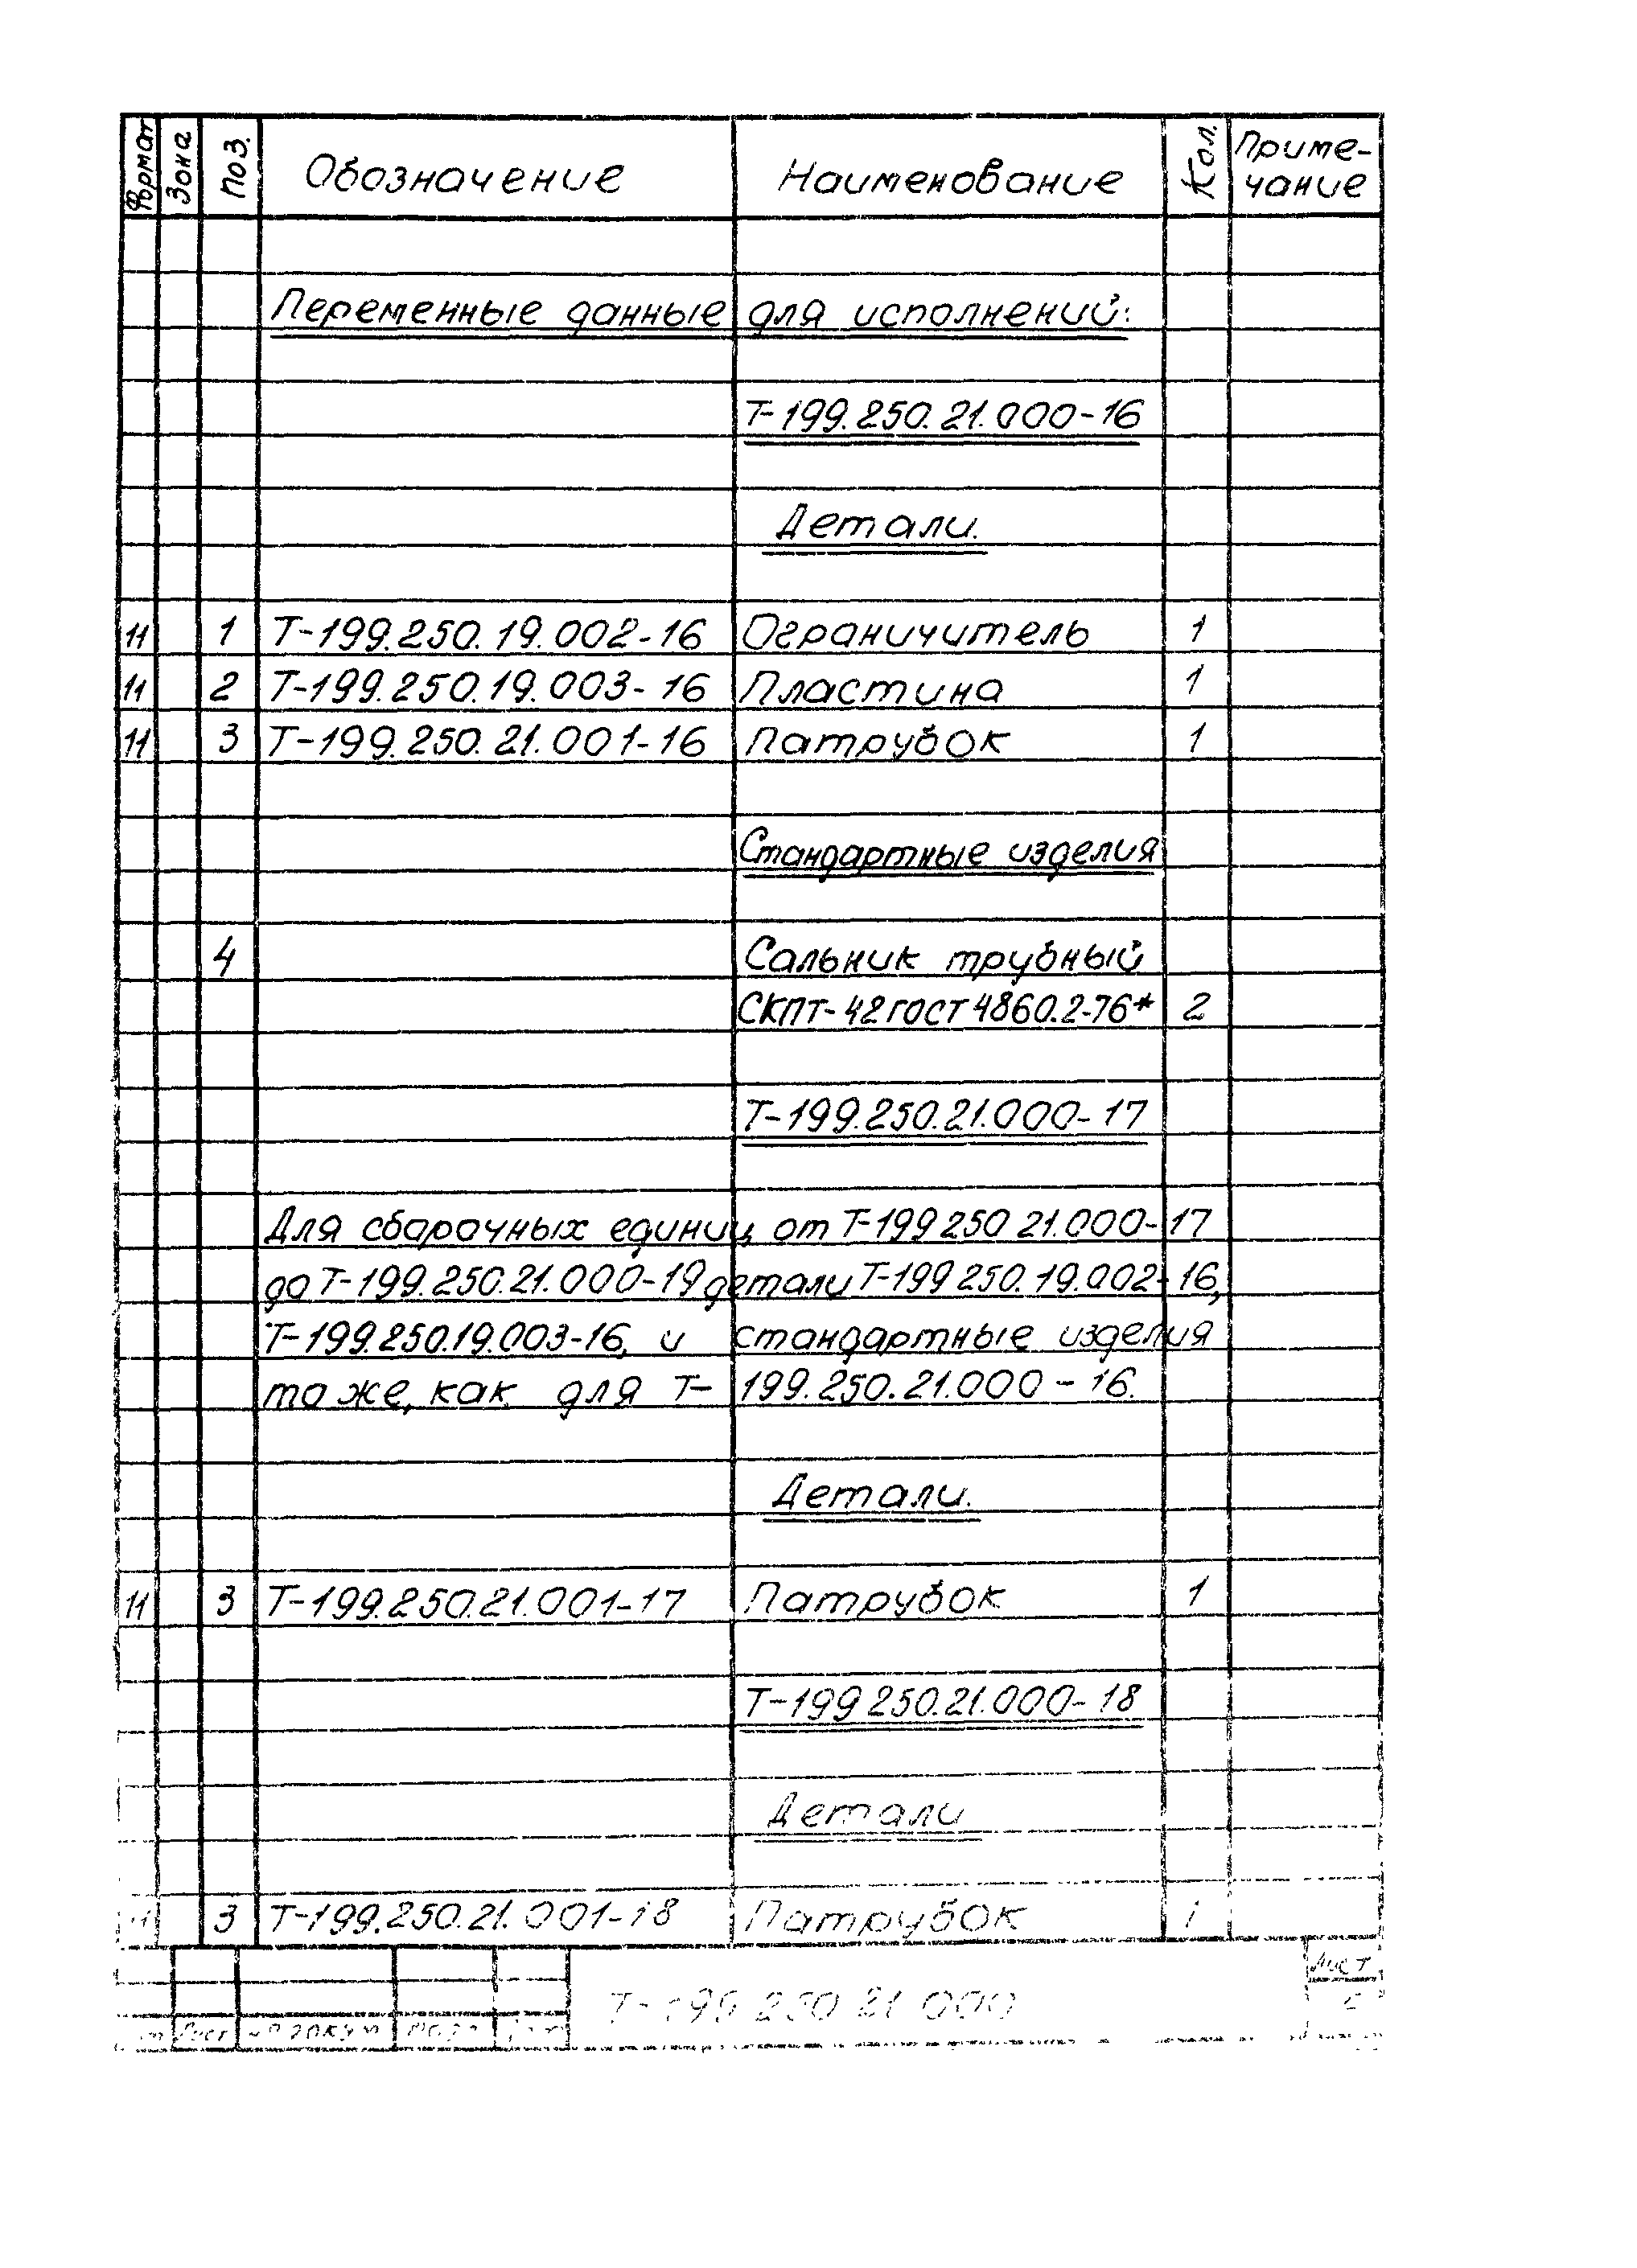 Формат Зона Поз. Обозначение Наименование Кол. Приме-
чание
Переменные данные для исполнений:
Т-199.250.21.000-16
Детали.
11 1 Т-199.250.19.002-16 Ограничитель 1
11 2 Т-199.250.19.003-16 Пластина 1
11 3 Т-199.250.21.001-16 Патрубок 1
Стандартные изделия
4 Сальник трубный
СКПТ-42 ГОСТ 4860.2-76* 2
Т-199.250.21.000-17
Для сборочных единиц от Т-199 250 21.000-17
до Т-199.250.21.000-19 детали Т-199 250.19.002-16,
Т-199.250.19.003-16, и стандартные изделия
то же, как для Т-199.250.21.000-16.
Детали.
11 3 Т-199.250.21.001-17 Патрубок 1
Т-199 250.21.000-18
Детали
11 3 Т-199.250.21.001-18 Патрубок 1
Т-199 250 21 000 Лист
Лист № докум